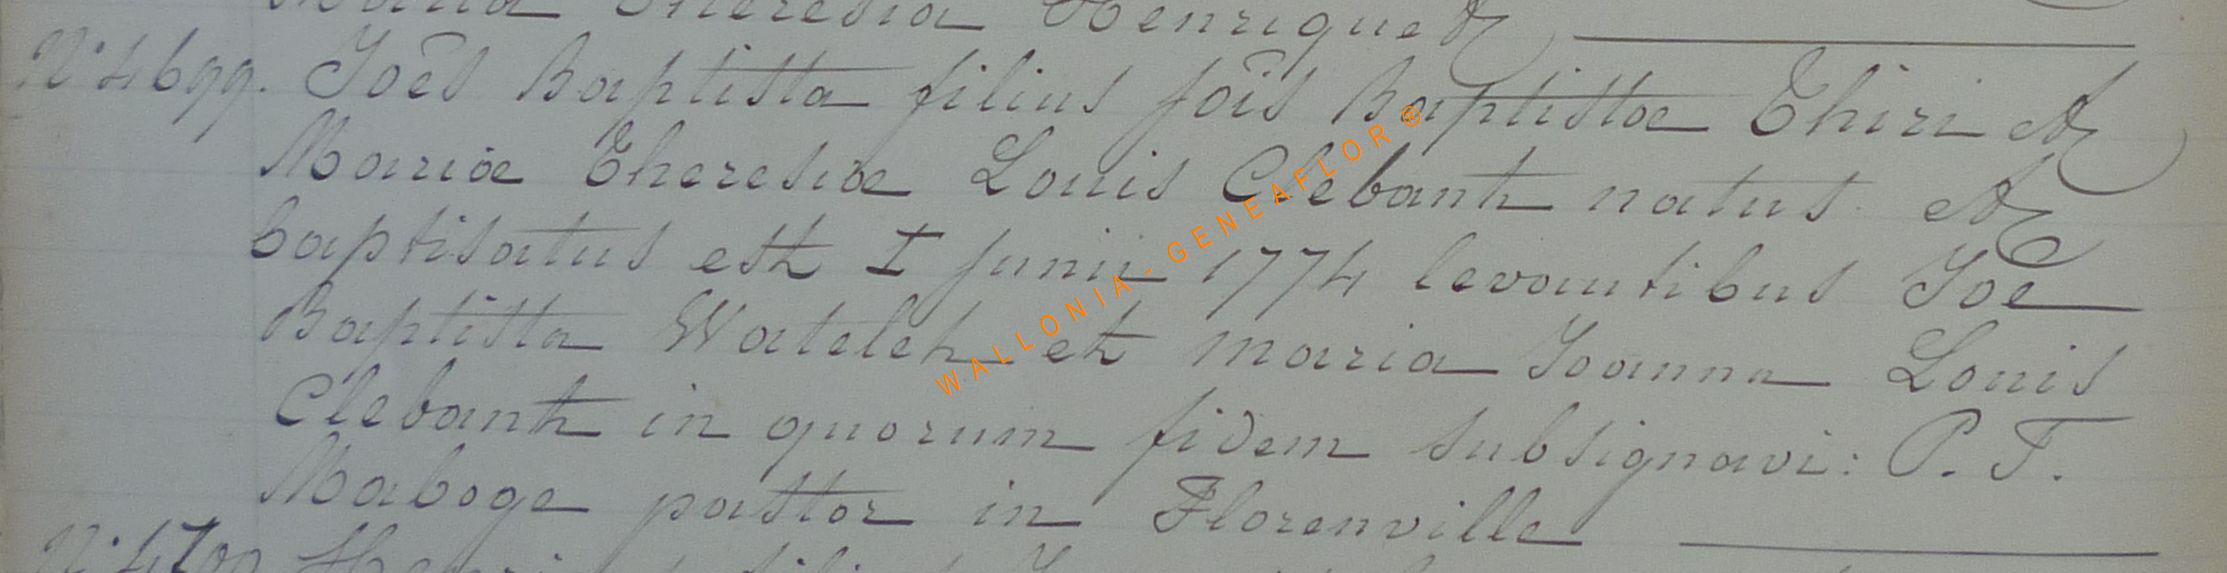 Maria Theresia Henriquet
N° 4699. Joēs Baptista filius joīs Baptistæ Thiri et
Mariæ Theresiæ Louis Clebant natus et
baptisatus est I Junii 1774 levantibus Joē
Baptista Watelet et maria Joanna Louis
Clebant in quorum fidem subsignavi: P. F.
Maboge pastor in Florenville
N° 4700
WALLONIA - GENEAFLOR ©